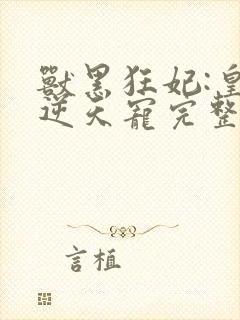 獸黑狂妃:皇
逆天寵完整
言植